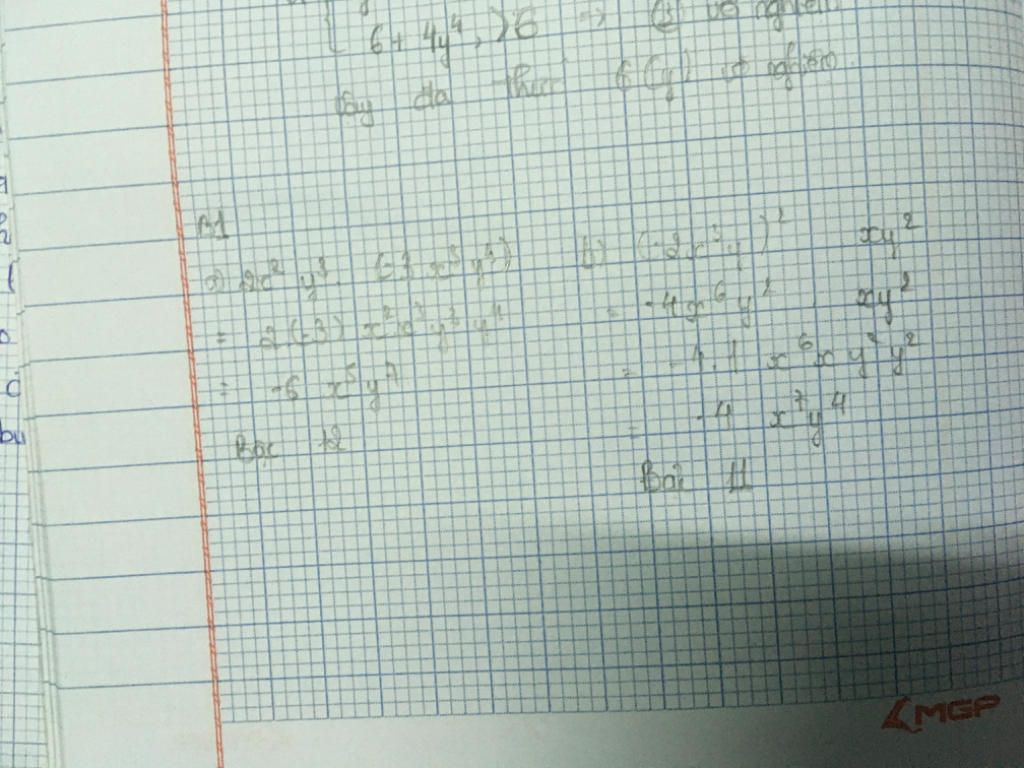 6 + 4y⁴ > 6 => G(y) vô nghiệm
Vậy đa thức G(y) vô nghiệm.
B1
a) 2x² y³. (-3 x³ y⁴)
= 2(-3) x² x³ y³ y⁴
= -6 x⁵ y⁷
Bậc 12
b) (-2x³y)² xy²
= -4x⁶y² . xy²
= -4.1 x⁶x y² y²
= -4 x⁷y⁴
Bậc 11
MGP